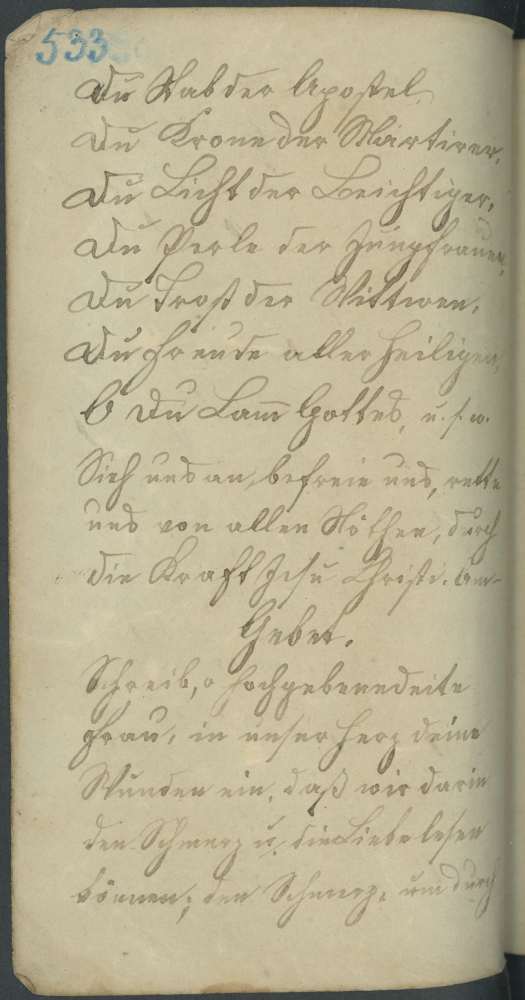 533
Du Stab der Apostel,
Du Krone der Märtirer,
Du Licht der Beichtiger,
Du Perle der Jungfrauen,
Du Trost der Wittwen,
Du Freude aller Heiligen,
O Du Lam̄ Gottes, u. s. w.
Sieh uns an, befreie uns, rette
uns von allen Nöthen, durch
die Kraft Jesu Christi. Am-
Gebet.
Schreib, o hochgebenedeite
Frau, in unser Herz deine
Wunden ein, daß wir darin
den Schmerz u. die Liebe lesen
können; den Schmerz, um durch